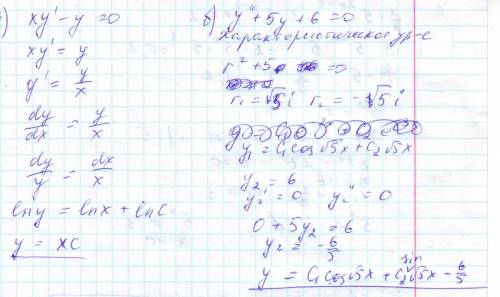 ) xy' - y = 0
xy' = y
y' = y/x
dy/dx = y/x
dy/y = dx/x
ln y = ln x + ln C
y = xC
б) y'' + 5y + 6 = 0
Характеристическое ур-е
r² + 5 = 0
r₁ = √5 i r₂ = -√5 i
y₁ = C₁ cos √5x + C₂ √5x
y₂ = 6
y₂' = 0 y₂'' = 0
0 + 5y₂ = 6
y₂ = -6/5
y = C₁ cos √5x + C₂ sin √5x - 6/5